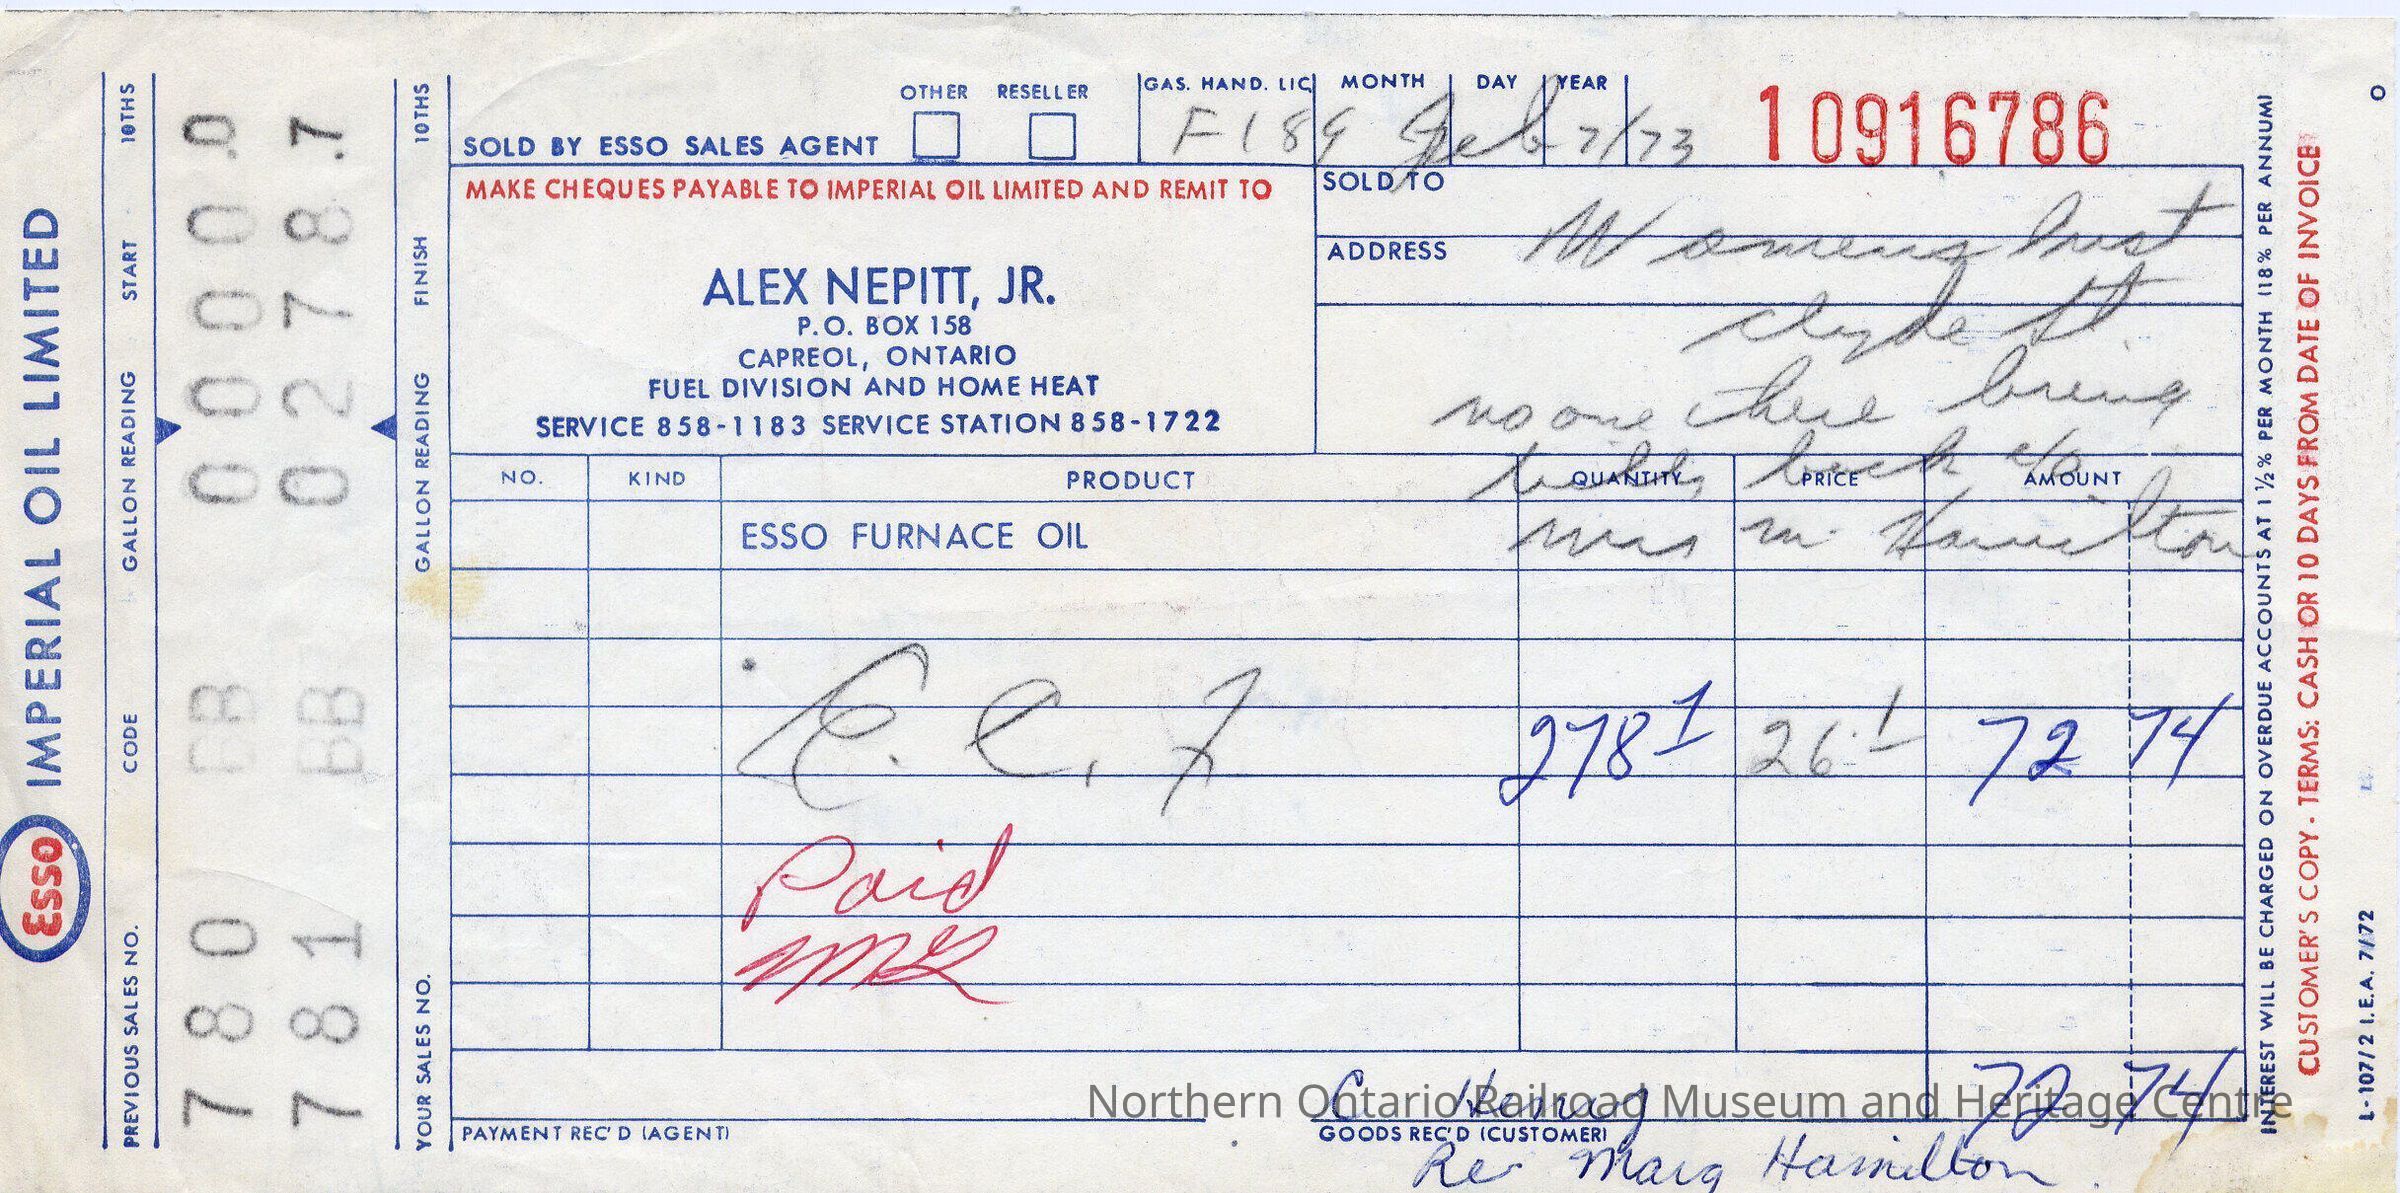 IMPERIAL OIL LIMITED
ESSO
PREVIOUS SALES NO. CODE GALLON READING START 10THS
780 BB 0000.0
781 BB 0278.7
YOUR SALES NO. GALLON READING FINISH 10THS
OTHER RESELLER
SOLD BY ESSO SALES AGENT
GAS. HAND. LIC MONTH DAY YEAR
F189 Feb 7/73
10916786
MAKE CHEQUES PAYABLE TO IMPERIAL OIL LIMITED AND REMIT TO
ALEX NEPITT, JR.
P.O. BOX 158
CAPREOL, ONTARIO
FUEL DIVISION AND HOME HEAT
SERVICE 858-1183 SERVICE STATION 858-1722
SOLD TO
Womens Inst
ADDRESS
Clyde St.
no one there bring
back c/o
Mrs M. Hamilton
NO. KIND PRODUCT QUANTITY PRICE AMOUNT
ESSO FURNACE OIL
278 1 26.1 72 74
Paid
72 74
C Henry
PAYMENT REC'D (AGENT) GOODS REC'D (CUSTOMER)
Marg Hamilton
INTEREST WILL BE CHARGED ON OVERDUE ACCOUNTS AT 1 ½% PER MONTH (18% PER ANNUM)
CUSTOMER'S COPY - TERMS: CASH OR 10 DAYS FROM DATE OF INVOICE
L-107/2 I.E.A. 7/72
Northern Ontario Railroad Museum and Heritage Centre